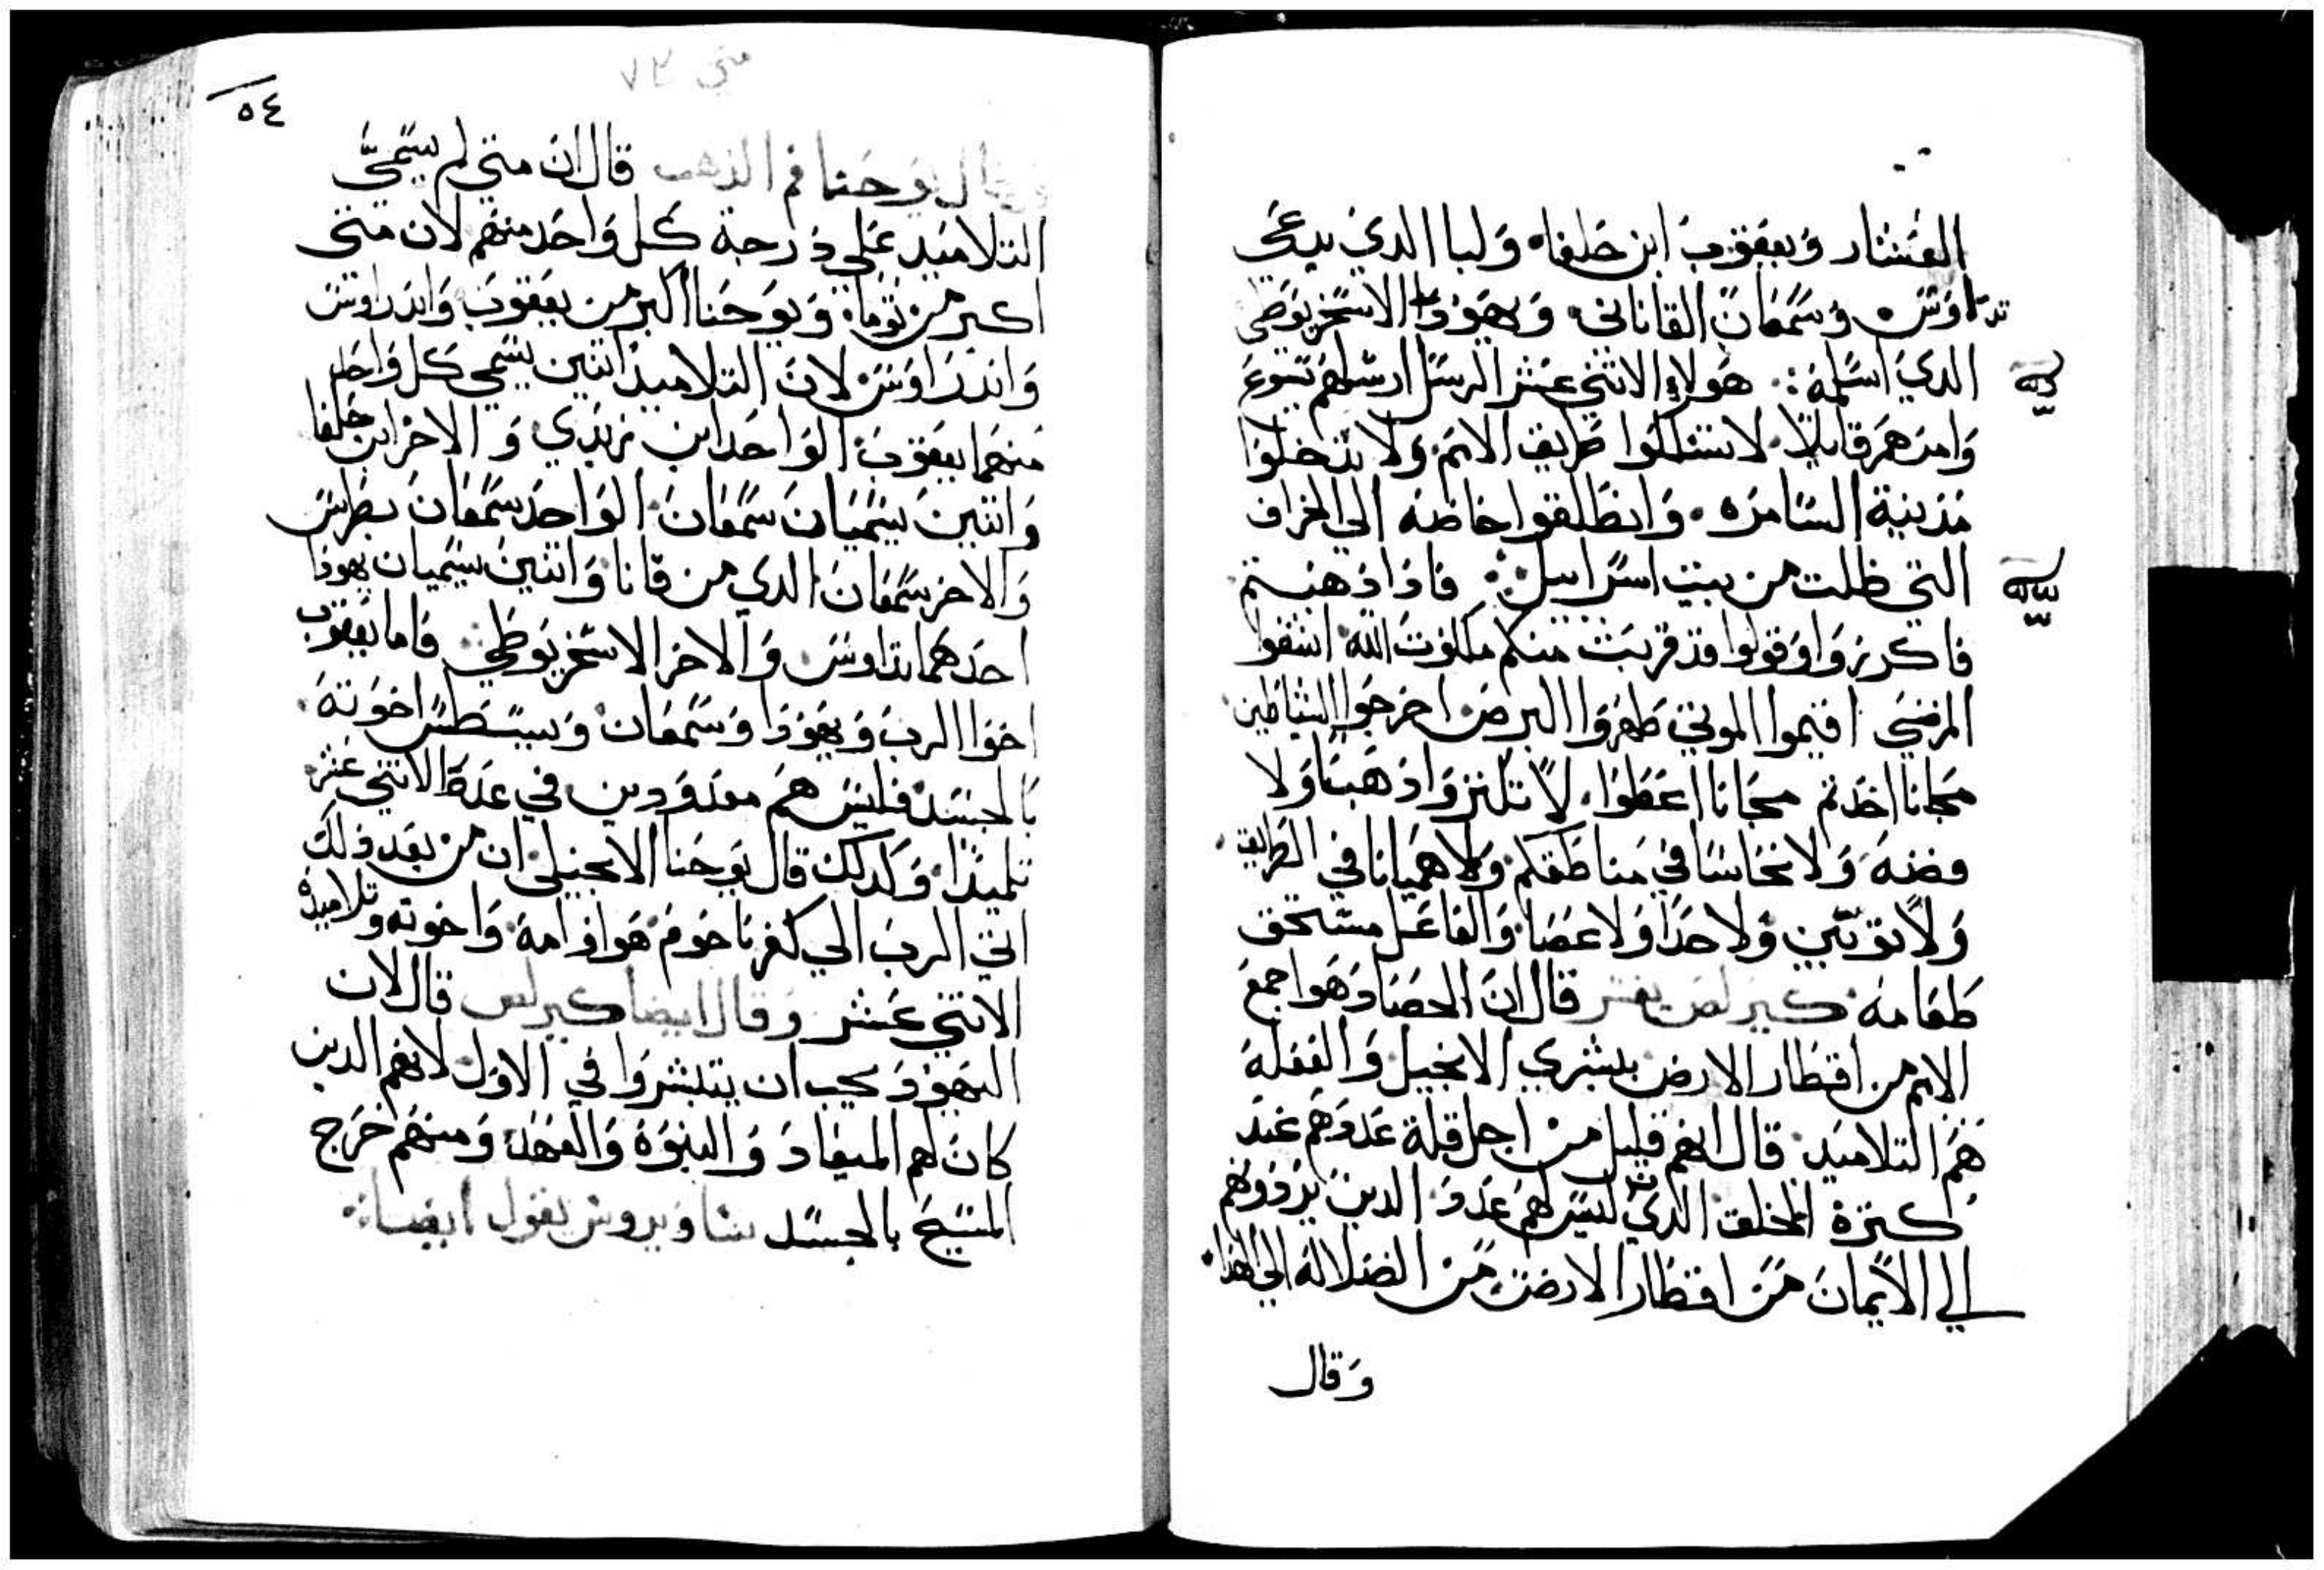 العشار ويعقوب ابن حلفا. ولبا الدي يدعى
تداوس. وسمعان القاناني. ويهودا الاسخريوطي
الدي اسلمه: هولاء الاثني عشر الرسل ارسلهم يسوع
وامرهم قايلا. لا تسلكوا طريق الامم. ولا تدخلوا
مدينة السامره. وانطلقوا خاصه الي الخراف
التي ظلت من بيت اسراييل: فاذا ذهبتم
فاكرزوا وقولوا قد قربت منكم ملكوت الله اشفوا
المرضي اقيموا الموتي طهروا البرص اخرجوا الشياطين
مجانا اخذتم مجانا اعطوا. لا تكنزوا ذهبا ولا
فضه ولا نحاسا في مناطقكم ولا هميانا في الطريق.
ولا توبين ولا حدا ولا عصا. والفاعل مستحق
طعامه كيرلص يفسر قال ان الحصاد هوا جمع
الامم من اقطار الارض ببشري الانجيل والفعله
هم التلاميد. قال انهم قليل من اجل قلة عددهم عند
كترة الخلق الدي ليس لهم عدد الدين يردوهم
الي الايمان من اقطار الارض من الضلاله الي الهدا.
وقال
متي ٧٢
٥٤
وقال يوحنا فم الذهب قال ان متي لم يسمي
التلاميد علي درجة كل واحد منهم لان متى
اكبر من توما. ويوحنا اكبر من يعقوب واندراوس
واندراوس لان التلاميذ اتنين يسمي كل واحد
منهما يعقوب الواحد ابن زبدي و الاخر ابن حلفا
واتنين يسميان سمعان الواحد سمعان بطرس
والاخر سمعان الدي من قانا واتنين يسميان يهودا
احدهما تداوس والاخر الاسخريوطي فاما يعقوب
اخوا الرب ويهودا وسمعان اخوته
بالجسد فليس هم معدودين في عدد الاتني عشر
تلميذا. وكدلك قال يوحنا الانجيلي ان من بعد ذلك
اتي الرب الي كفرناحوم هوا وامه. واخوته وتلاميده
الاتني عشر وقال ايضا كيرلص قال لان
اليهود يجب ان يتبشروا في الاول لانهم الدين
كان لهم الميعاد والنبوة والعهد. ومنهم خرج
المسيح بالجسد ساويروس يقول ايضا: